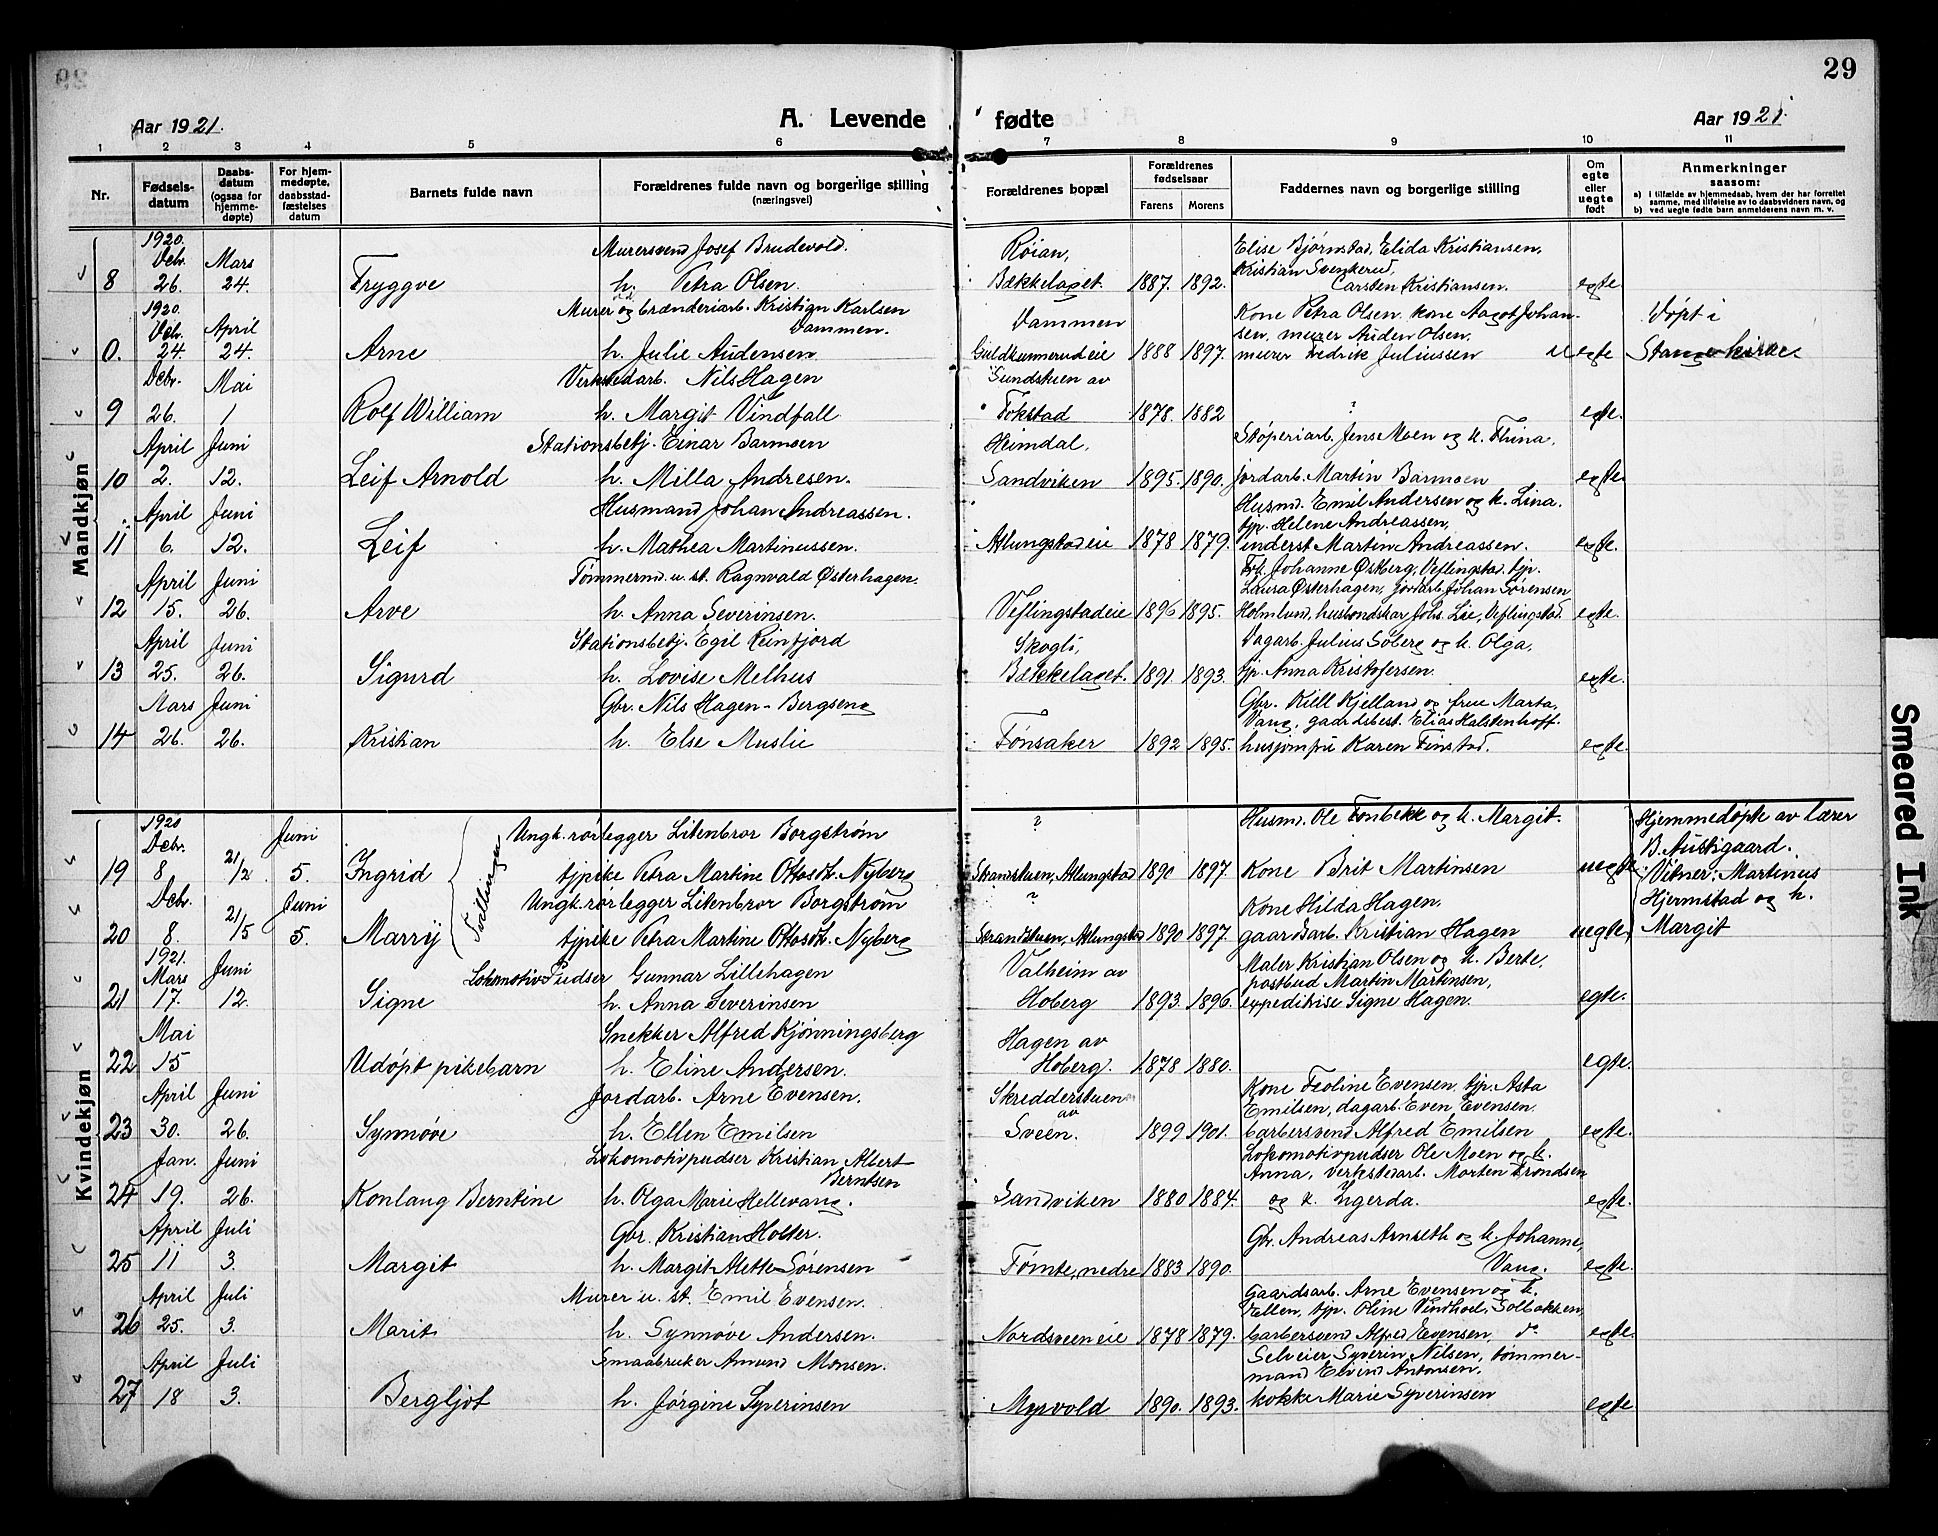 29
Aar 1921.
A. Levende
fødte
Aar 1921.
1 2 3 4 5 6 7 8 9 10 11
Nr.
Fødsels-
datum
Daabs-
datum
(ogsaa for
hjemme-
døpte)
For hjem-
medøpte,
daabsstad-
fæstelses
datum
Barnets fulde navn
Forældrenes fulde navn og borgerlige stilling
(næringsvei)
Forældrenes bopæl
Forældrenes
fødselsaar
Farens
Morens
Faddernes navn og borgerlige stilling
Om
egte
eller
uegte
født
Anmerkninger
saasom:
a) i tilfælde av hjemmedaab, hvem der har forrettet
samme, med tilføielse av to daabsvidners navn, og
b) ved uegte fødte barn anmelderens navn m. v.
Mandkjøn
1920.
Debr. Mars Murersvend Josef Brudevold. Røian, Elise Bjørnstad, Elida Kristiansen,
Kristian Svenkerud,
8 26. 24. Tryggve h. Petra Olsen. Bækkelaget. 1887. 1892. Carsten Kristiansen. egte
1920.
Debr. April Murer og brænderiarb. Kristian Karlsen Dammen. Dammen Kone Petra Olsen, kone Aagot Johan-
sen, murer Auden Olsen, Døpt i
0. 24. 24. Arne h. Julie Audensen Guldkunnerud eie 1888 1897. murer Fredrik Juliussen egte Stange kirke.
Debr. Mai Verkstedarb. Nils Hagen Sundstuen av
9 26. 1 Rolf William h. Margit Vindfall Tokstad 1878. 1882 ? egte.
April Juni Stationsbetj. Einar Barmoen Heimdal, Støperiarb. Jens Moen og k. Thina,
10 2. 12. Leif Arnold h. Milla Andresen. Sandviken 1895. 1890. jordarb. Martin Barmoen egte.
April Juni Husmand Johan Andreassen. Husmd. Emil Andersen og k. Lina.
tjp. Helene Andreassen,
11 6. 12. Leif h. Mathea Martinussen. Atlungstad eie 1878 1879. inderst Martin Andreassen. egte.
April Juni Tømmermd. u. st. Ragnvald Østerhagen. Frk. Johanne Østberg, Veflingstad. tjp.
Laura Østerhagen, jordarb. Johan Sørensen
12 15. 26. Arve h. Anna Severinsen. Veflingstad eie 1896 1895. Holmlund, husbondskar Johs. Lie, Veflingstad. egte.
April Juni Stationsbetj. Egil Reinfjord Skogli, Dagarb. Julius Soberg og k. Olga,
13 25. 26. Sigurd h. Lovise Melhus Bækkelaget. 1891 1893. tjp. Anna Kristofersen. egte.
Mars Juni Gbr. Nils Hagen-Bergseng Gbr. Kield Kjelland og frue Marta,
Vang, gaardsbest. Elias Halstenhoff
14 26. 26. Kristian h. Else Muslie Tønsaker 1892 1895. husjomfru Karen Finstad. egte.
Kvindekjøn
1920
Debr. Juni Ungk. rørlegger Litenbror Borgstrøm ? Husmd. Ole Tonbekk og k. Margit. Hjemmedøpte av lærer
B. Austigaard.
19 8 21/2 5. Ingrid tjpike Petra Martine Ottosdt. Nyberg Strandstuen, Atlungstad 1890 1897. Kone Brit Martinsen uegte Vitner: Martinius
Tvillinger
Debr. Juni Ungk. rørlegger Litenbror Borgstrøm ? Kone Hilda Hagen, Hjermstad og h.
20 8. 21/5 5. Marry tjpike Petra Martine Ottosdt. Nyberg Strandstuen, Atlungstad 1890 1897. gaardsarb. Kristian Hagen uegte Margit
1921.
Mars Juni Lokomotiv Pudser Gunnar Lillehagen Valheim av Maler Kristian Olsen og k. Berte,
postbud Martin Martinsen,
21 17. 12. Signe h. Anna Severinsen Hoberg 1893. 1896. expeditrise Signe Hagen. egte.
Mai Snekker Alfred Kjønningsberg Hagen av
22 15 Udøpt pikebarn h. Eline Andersen. Hoberg. 1878 1880. egte.
April Juni Jordarb. Arne Evensen. Skredderstuen av Kone Teoline Evensen, tjp. Asta
Emilsen, dagarb. Even Evensen.
23 30. 26. Synnøve h. Ellen Emilsen Sveen. 1899 1901. barbersvend Alfred Emilsen egte.
Jan. Juni Lokomotivpudser Kristian Albert Berntsen Lokomotivpudser Ole Moen og k.
Anna, Verkstedarb. Morten Trondsen
24 19. 26. Konlaug Berntine h. Olga Marie Hellevang. Sandviken 1880 1884. og k. Ingerda. egte.
April Juli Gbr. Kristian Holter. Gbr. Andreas Arnseth og k. Johanne,
25 11 3. Margit h. Margit Alette Sørensen Tømte, nedre 1883 1890. Vang. egte.
April Juli Murer u. st. Emil Evensen. Gaardsarb. Arne Evensen og k.
Ellen, tjp. Oline Vindhol, Solbakken,
26 25. 3. Marit h. Synnøve Andersen. Nordsveen eie 1878 1879. barbersvend Alfred Evensen, do egte.
April Juli Smaabruker Amund Monsen. Selveier Syverin Nilsen, tømmer-
mand Elvind Antonsen,
27 18 3. Bergljot h. Jørgine Syverinsen Myrvold 1890. 1893. kokke Marie Syverinsen egte.
Smeared Ink